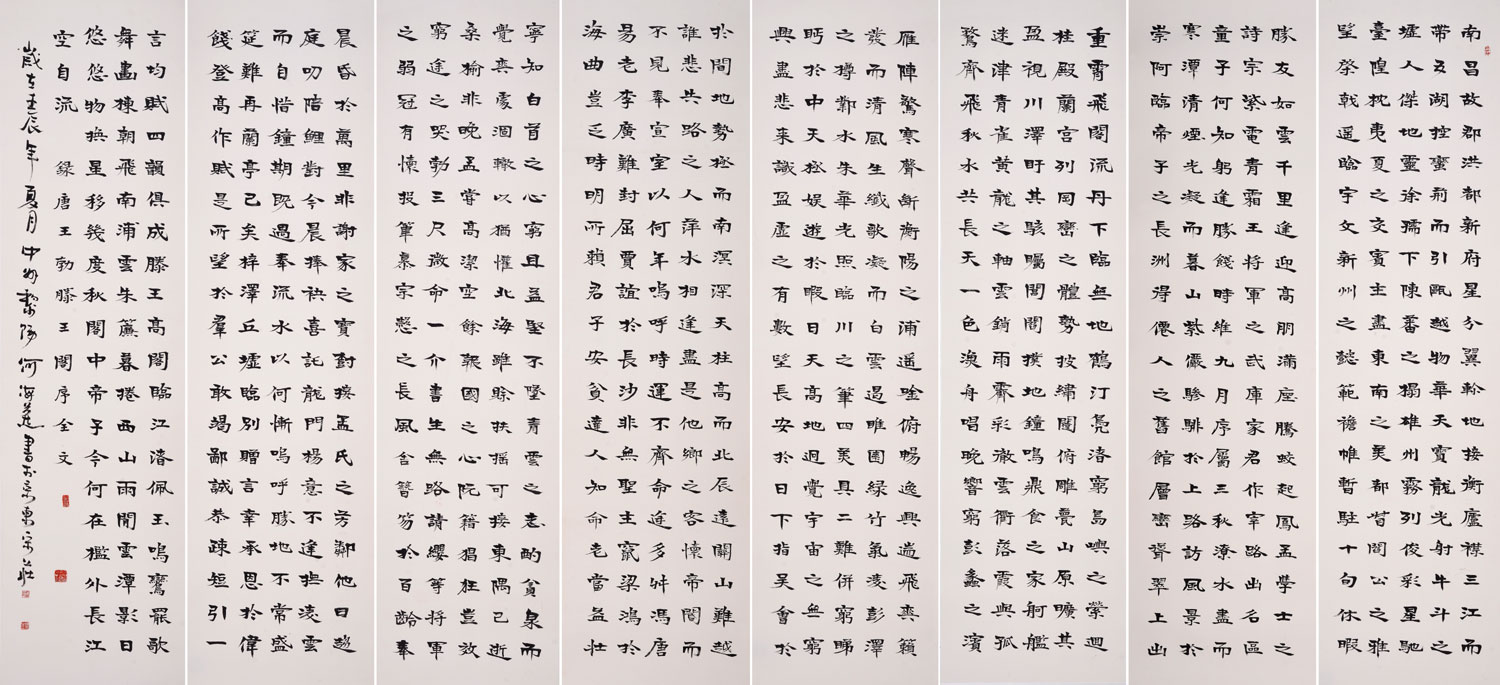 南昌故郡洪都新府星分翼軫地接衡廬襟三江而
帶五湖控蠻荊而引甌越物華天寶龍光射牛斗之
墟人傑地靈徐孺下陳蕃之榻雄州霧列俊彩星馳
臺隍枕夷夏之交賓主盡東南之美都督閻公之雅
望棨戟遙臨宇文新州之懿範襜帷暫駐十旬休暇
勝友如雲千里逢迎高朋滿座騰蛟起鳳孟學士之
詩宗紫電青霜王將軍之武庫家君作宰路出名區
童子何知躬逢勝餞時維九月序屬三秋潦水盡而
寒潭清煙光凝而暮山紫儼驂騑於上路訪風景於
崇阿臨帝子之長洲得僊人之舊館層巒聳翠上出
重霄飛閣流丹下臨無地鶴汀鳧渚窮島嶼之縈迴
桂殿蘭宮列岡巒之體勢披繡闥俯雕甍山原曠其
盈視川澤盱其駭矚閭閻撲地鐘鳴鼎食之家舸艦
迷津青雀黃龍之軸雲銷雨霽彩徹雲衢落霞與孤
鶩齊飛秋水共長天一色漁舟唱晚響窮彭蠡之濱
雁陣驚寒聲斷衡陽之浦遙吟俯暢逸興遄飛爽籟
發而清風生纖歌凝而白雲遏睢園綠竹氣凌彭澤
之樽鄴水朱華光照臨川之筆四美具二難併窮睇
眄於中天極娛遊於暇日天高地迥覺宇宙之無窮
興盡悲來識盈虛之有數望長安於日下指吳會於
於間地勢極而南溟深天柱高而北辰遠關山難越
誰悲失路之人萍水相逢盡是他鄉之客懷帝閽而
不見奉宣室以何年嗚呼時運不齊命途多舛馮唐
易老李廣難封屈賈誼於長沙非無聖主竄梁鴻於
海曲豈乏時明所賴君子安貧達人知命老當益壯
寧知白首之心窮且益堅不墜青雲之志酌貪泉而
覺爽處涸轍以猶懽北海雖賒扶搖可接東隅已逝
桑榆非晚孟嘗高潔空餘報國之心阮籍猖狂豈效
窮途之哭勃三尺微命一介書生無路請纓等將軍
之弱冠有懷投筆慕宗愨之長風舍簪笏於百齡奉
晨昏於萬里非謝家之寶對接孟氏之芳鄰他日趨
庭叨陪鯉對今晨捧袂喜託龍門楊意不逢撫凌雲
而自惜鐘期既遇奉流水以何慚嗚呼勝地不常盛
筵難再蘭亭已矣梓澤丘墟臨別贈言幸承恩於偉
餞登高作賦是所望於羣公敢竭鄙誠恭疎短引一
言均賦四韻俱成滕王高閣臨江渚佩玉鳴鸞罷歌
舞畫棟朝飛南浦雲朱簾暮捲西山雨閒雲潭影日
悠悠物換星移幾度秋閣中帝子今何在檻外長江
空自流 錄唐王勃滕王閣序全文
歲在壬辰年夏月中州黎陽何海蓮書於京東宋莊